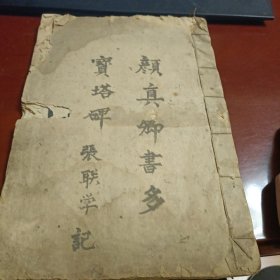 顔真卿書多
寶塔碑
張联学記